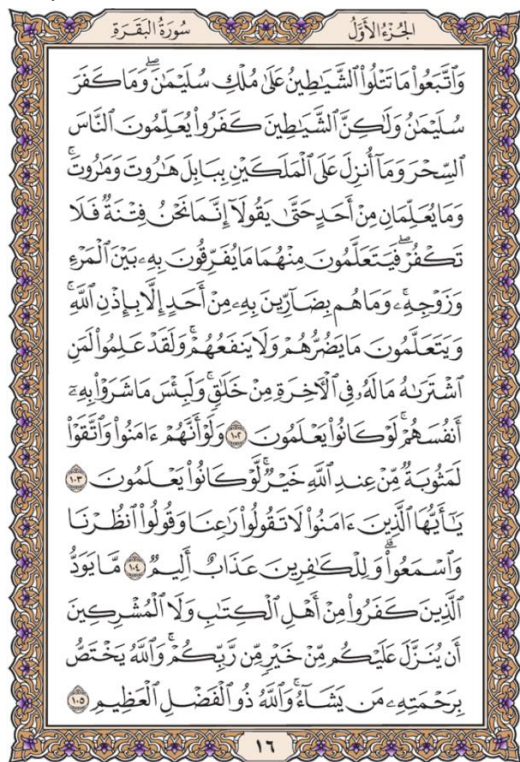 الجُزْءُ الأَوَّلُ سُورَةُ البَقَرَةِ
وَٱتَّبَعُوا۟ مَا تَتْلُوا۟ ٱلشَّيَـٰطِينُ عَلَىٰ مُلْكِ سُلَيْمَـٰنَ ۖ وَمَا كَفَرَ
سُلَيْمَـٰنُ وَلَـٰكِنَّ ٱلشَّيَـٰطِينَ كَفَرُوا۟ يُعَلِّمُونَ ٱلنَّاسَ
ٱلسِّحْرَ وَمَآ أُنزِلَ عَلَى ٱلْمَلَكَيْنِ بِبَابِلَ هَـٰرُوتَ وَمَـٰرُوتَ ۚ
وَمَا يُعَلِّمَانِ مِنْ أَحَدٍ حَتَّىٰ يَقُولَآ إِنَّمَا نَحْنُ فِتْنَةٌ فَلَا
تَكْفُرْ ۖ فَيَتَعَلَّمُونَ مِنْهُمَا مَا يُفَرِّقُونَ بِهِۦ بَيْنَ ٱلْمَرْءِ
وَزَوْجِهِۦ ۚ وَمَا هُم بِضَآرِّينَ بِهِۦ مِنْ أَحَدٍ إِلَّا بِإِذْنِ ٱللَّهِ ۚ
وَيَتَعَلَّمُونَ مَا يَضُرُّهُمْ وَلَا يَنفَعُهُمْ ۚ وَلَقَدْ عَلِمُوا۟ لَمَنِ
ٱشْتَرَىٰهُ مَا لَهُۥ فِى ٱلْـَٔاخِرَةِ مِنْ خَلَـٰقٍ ۚ وَلَبِئْسَ مَا شَرَوْا۟ بِهِۦٓ
أَنفُسَهُمْ ۚ لَوْ كَانُوا۟ يَعْلَمُونَ ١٠٢ وَلَوْ أَنَّهُمْ ءَامَنُوا۟ وَٱتَّقَوْا۟
لَمَثُوبَةٌ مِّنْ عِندِ ٱللَّهِ خَيْرٌ ۖ لَّوْ كَانُوا۟ يَعْلَمُونَ ١٠٣
يَـٰٓأَيُّهَا ٱلَّذِينَ ءَامَنُوا۟ لَا تَقُولُوا۟ رَٰعِنَا وَقُولُوا۟ ٱنظُرْنَا
وَٱسْمَعُوا۟ ۗ وَلِلْكَـٰفِرِينَ عَذَابٌ أَلِيمٌ ١٠٤ مَّا يَوَدُّ
ٱلَّذِينَ كَفَرُوا۟ مِنْ أَهْلِ ٱلْكِتَـٰبِ وَلَا ٱلْمُشْرِكِينَ
أَن يُنَزَّلَ عَلَيْكُم مِّنْ خَيْرٍ مِّن رَّبِّكُمْ ۗ وَٱللَّهُ يَخْتَصُّ
بِرَحْمَتِهِۦ مَن يَشَآءُ ۚ وَٱللَّهُ ذُو ٱلْفَضْلِ ٱلْعَظِيمِ ١٠٥
١٦